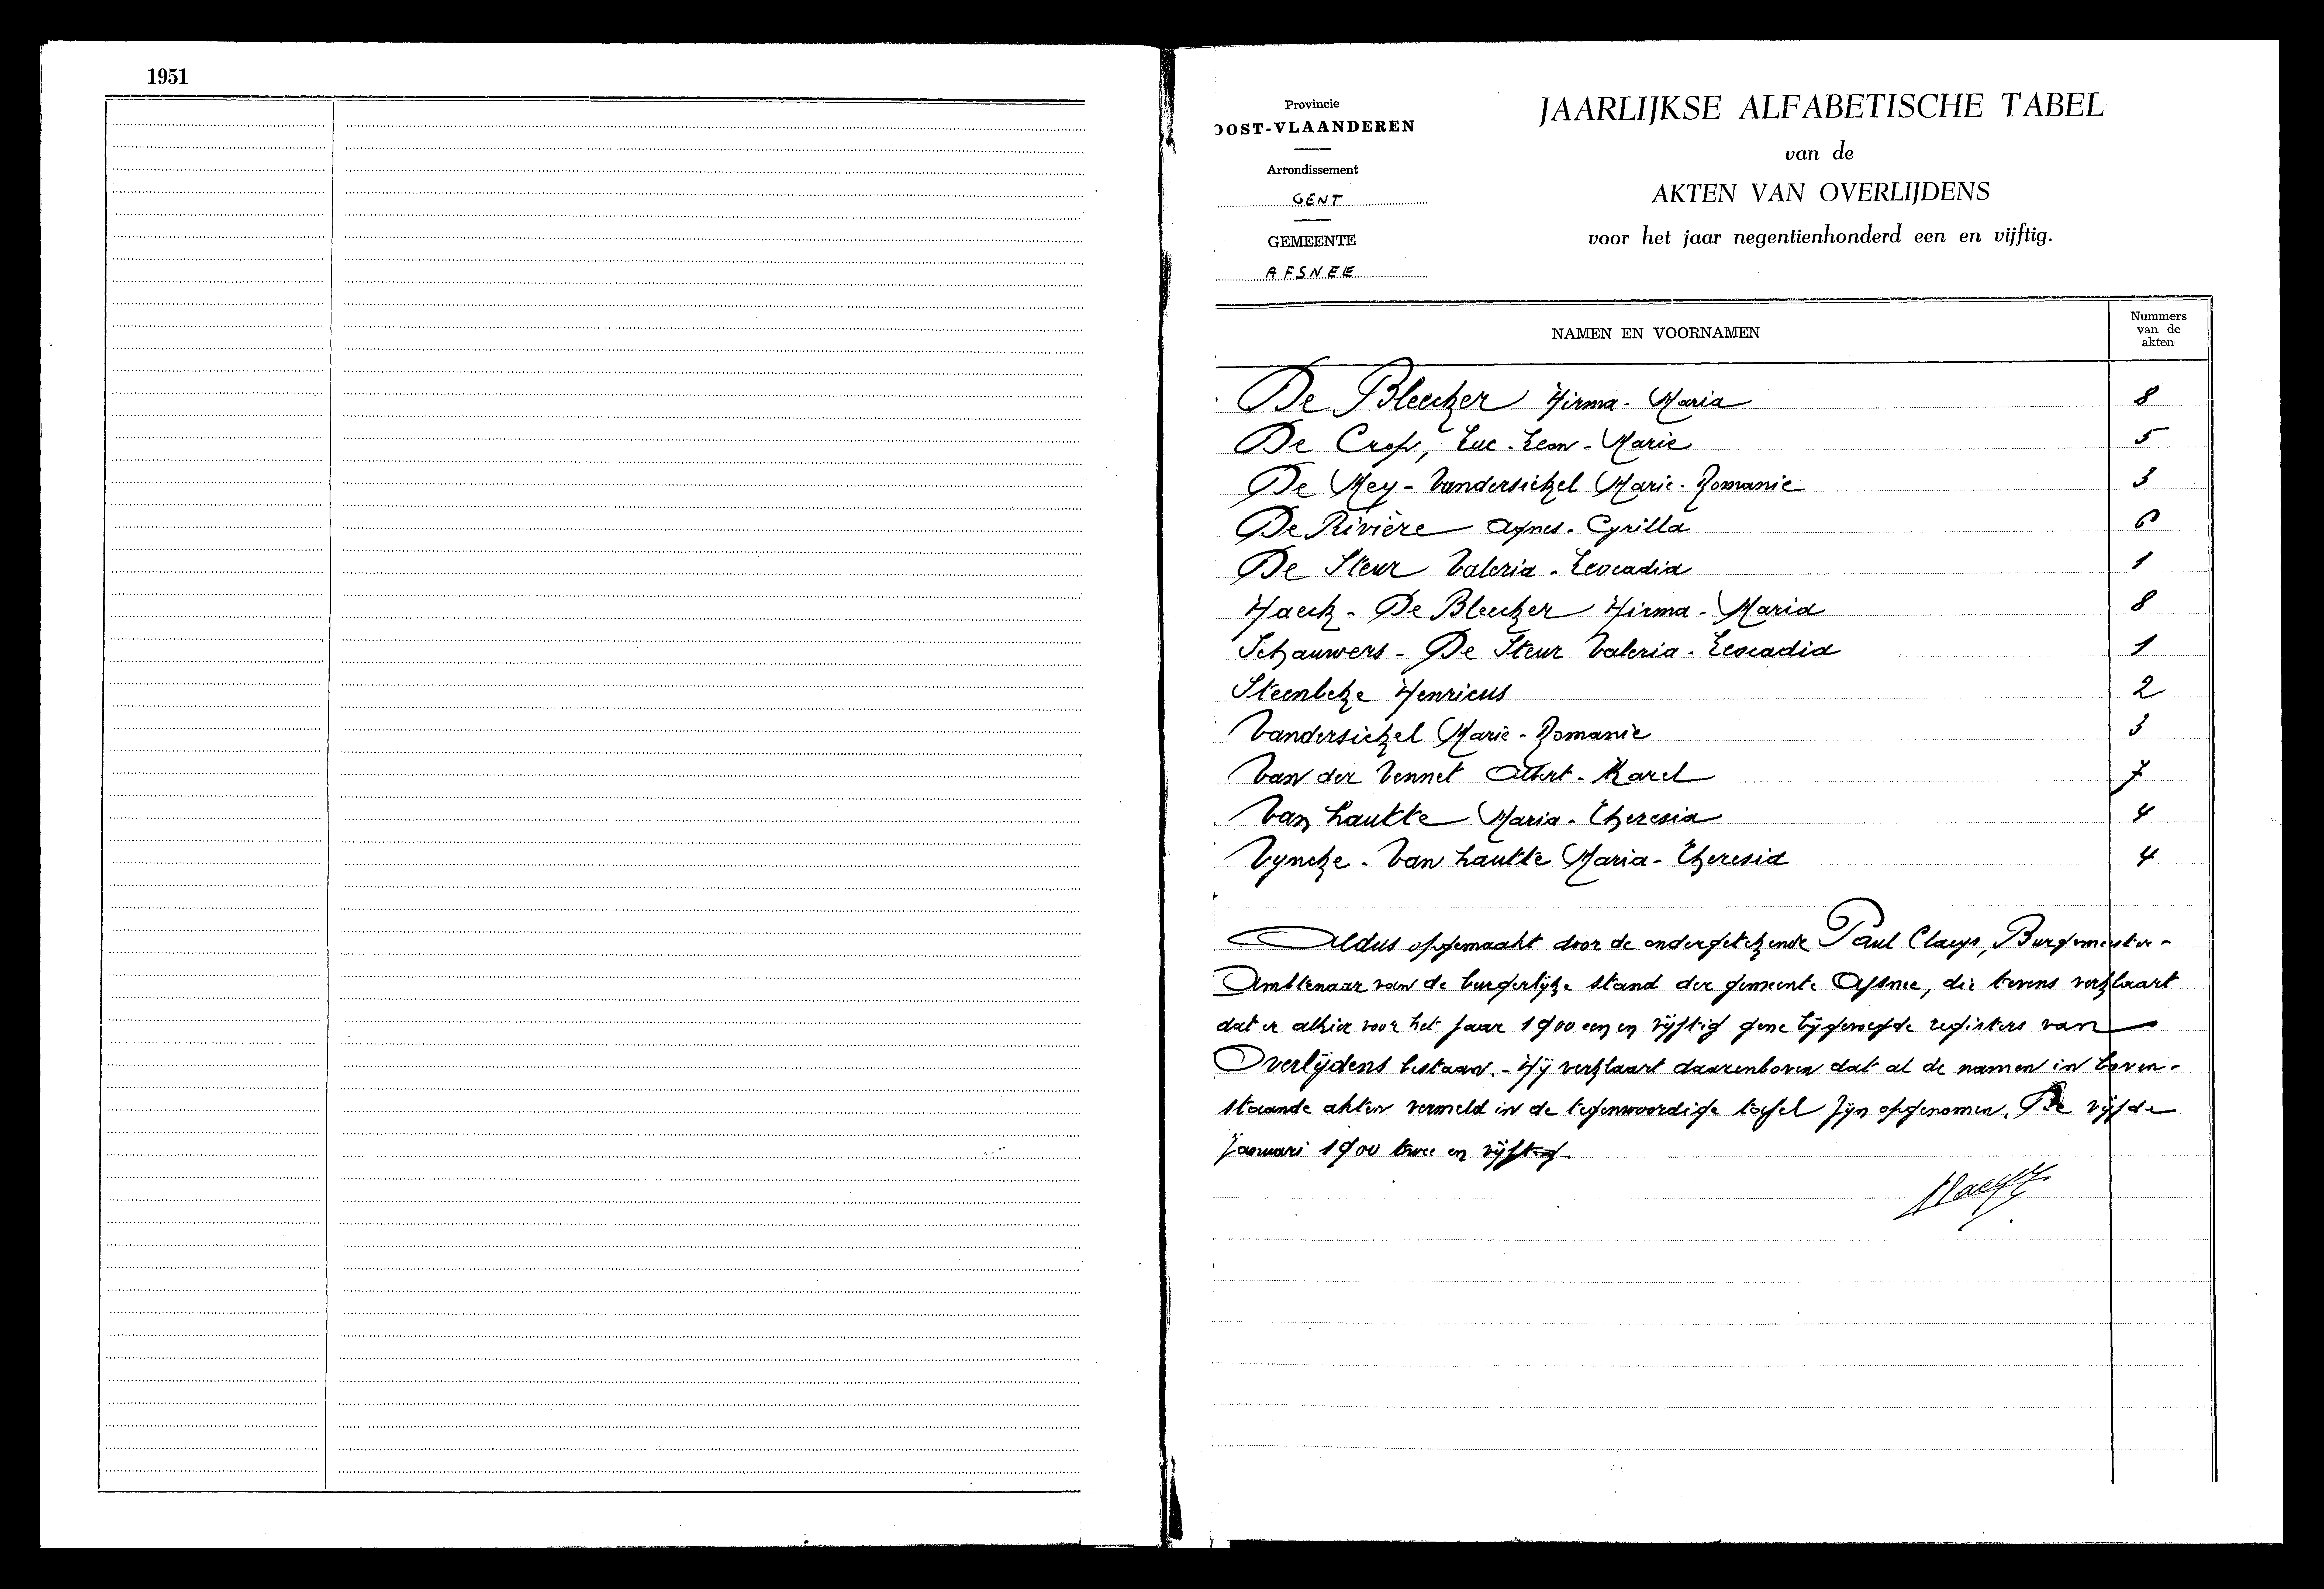 1951
Provincie
OOST-VLAANDEREN
Arrondissement
GENT
GEMEENTE
AFSNEE
JAARLIJKSE ALFABETISCHE TABEL
van de
AKTEN VAN OVERLIJDENS
voor het jaar negentienhonderd een en vijftig.
NAMEN EN VOORNAMEN
Nummers
van de
akten
De Bleecker Hirma - Maria 8
De Crop, Luc - Leon - Marie 5
De Mey - Vandersickel Marie - Romanie 3
De Rivière Agnes - Cyrilla 6
De Steur Valeria - Leocadia 1
Haeck - De Bleecker Hirma - Maria 8
Schauwers - De Steur Valeria - Leocadia 1
Steenbeke Henricus 2
Vandersickel Marie - Romanie 3
Van der Vennet Albert - Karel 7
Van hautte Maria - Theresia 4
Vyncke - Van hautte Maria - Theresia 4
Aldus opgemaakt door de ondergetekende Paul Claeys, Burgemeester -
Ambtenaar van de burgerlijke stand der gemeente Afsnee, die tevens verklaart
dat er alhier voor het jaar 1900 een en vijftig gene bijgevoegde registers van
Overlijdens bestaan. - Hij verklaart daarenboven dat al de namen in boven-
staande akten vermeld in de tegenwoordige tafel zijn opgenomen. De vijfde
Januari 1900 twee en vijftig.